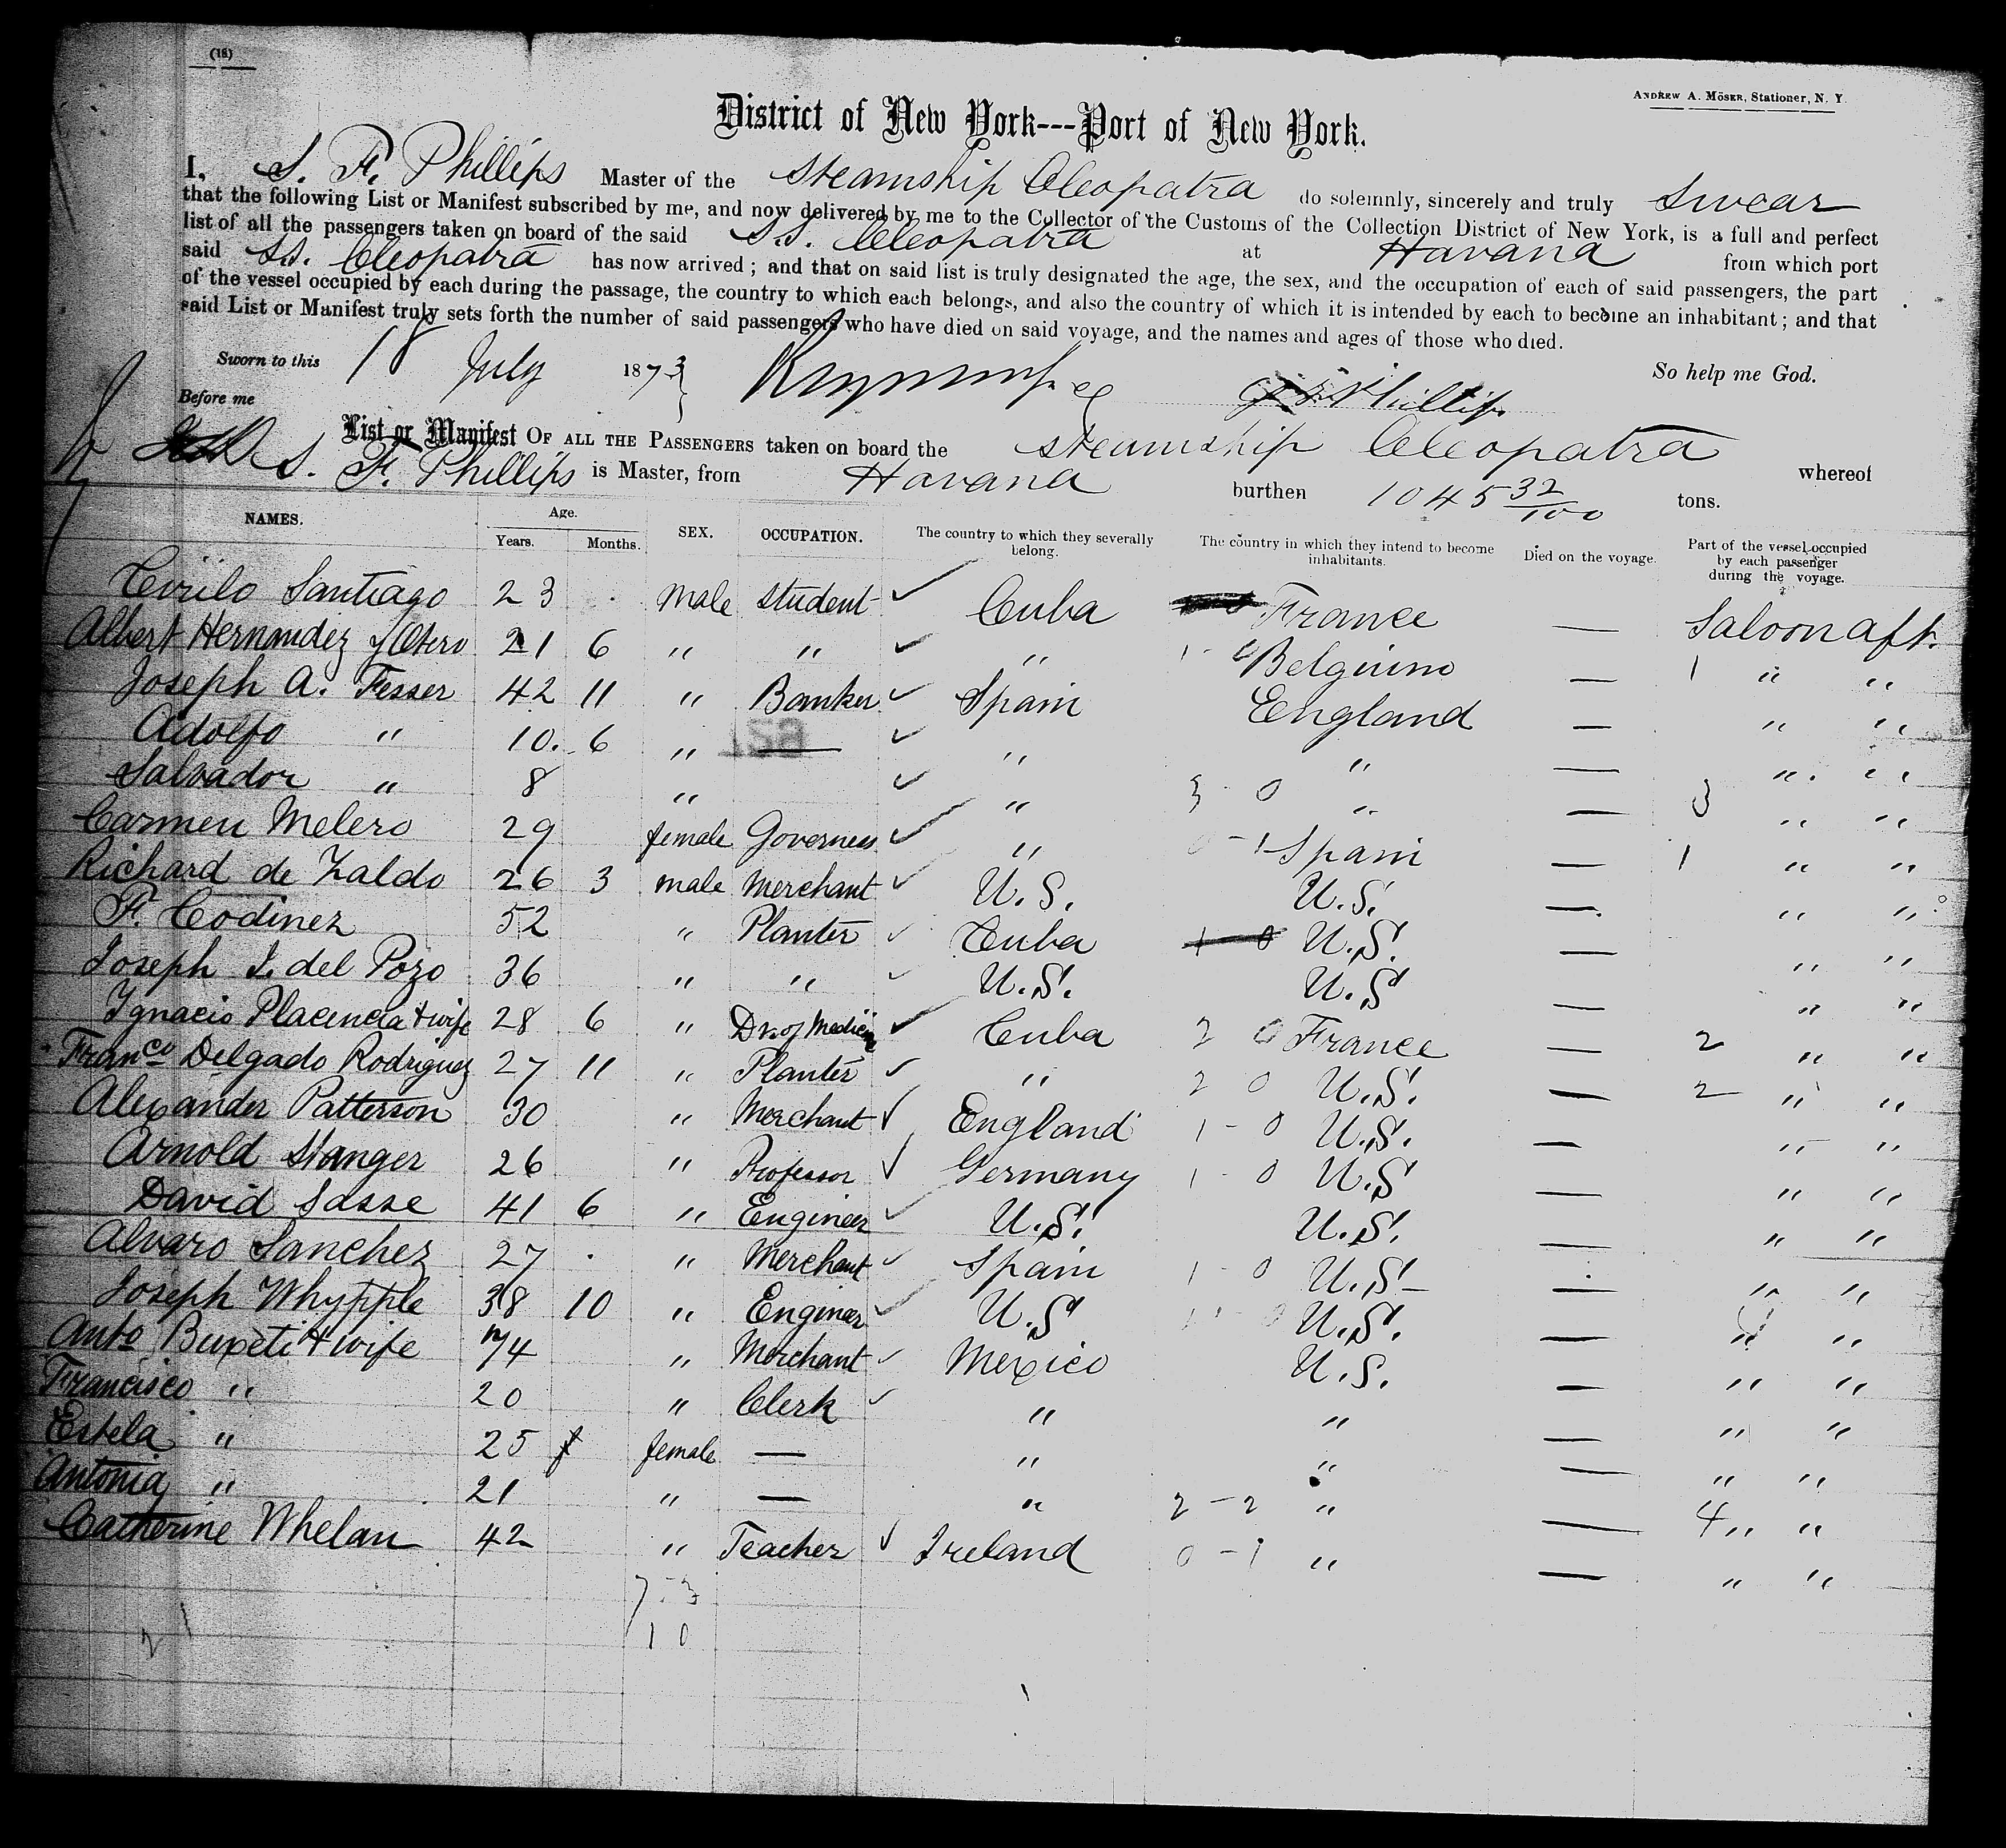 (18)
ANDREW A. MÖSER, Stationer, N. Y.
District of New York---Port of New York.
I, S. F. Phillips Master of the Steamship Cleopatra do solemnly, sincerely and truly Swear
that the following List or Manifest subscribed by me, and now delivered by me to the Collector of the Customs of the Collection District of New York, is a full and perfect
list of all the passengers taken on board of the said S.S. Cleopatra at Havana from which port
said S.S. Cleopatra has now arrived; and that on said list is truly designated the age, the sex, and the occupation of each of said passengers, the part
of the vessel occupied by each during the passage, the country to which each belongs, and also the country of which it is intended by each to become an inhabitant; and that
said List or Manifest truly sets forth the number of said passengers who have died on said voyage, and the names and ages of those who died.
Sworn to this 18 July 1873 So help me God.
Before me Phillips
List or Manifest OF ALL THE PASSENGERS taken on board the Steamship Cleopatra whereof
S. F. Phillips is Master, from Havana burthen 1045 32/100 tons.
NAMES. Age. Years. Months. SEX. OCCUPATION. The country to which they severally belong. The country in which they intend to become inhabitants. Died on the voyage. Part of the vessel occupied by each passenger during the voyage.
Cirilo Santiago 23 male student Cuba France — Saloon aft.
Albert Hernandez y Otero 21 6 " " " 1 - 0 Belgium — 1 " "
Joseph A. Fesser 42 11 " Banker Spain England — " "
Adolfo " 10. 6 " — " " — " "
Salvador " 8 " " 3 - 0 " — 3 " "
Carmen Melero 29 female Governess " 0 - 1 Spain — 1 " "
Richard de Zaldo 26 3 male Merchant U.S. U.S. — " "
F. Codinez 52 " Planter Cuba 1 - 0 U.S. — " "
Joseph I. del Pozo 36 " " U.S. U.S — " "
Ignacio Placencia & wife 28 6 " Dr. of Medicin Cuba 2 0 France — 2 " "
Franco Delgado Rodriguez 27 11 " Planter " 2 0 U.S. — 2 " "
Alexander Patterson 30 " Merchant England 1 - 0 U.S. — " "
Arnold Stanger 26 " Professor Germany 1 - 0 U.S — " "
David Sasse 41 6 " Engineer U.S. U.S. — " "
Alvaro Sanchez 27 " Merchant Spain 1 - 0 U.S. — " "
Joseph Whypple 38 10 " Engineer U.S U.S. — " "
Anto Bupeti & wife 74 " Merchant Mexico U.S. — " "
Francisco " 20 " Clerk " " — " "
Estela " 25 female — " " — " "
Antonia " 21 " — " 2 - 2 " — 4 " "
Catherine Whelan 42 " Teacher Ireland 0 - 1 " — " "
7 - 3
10